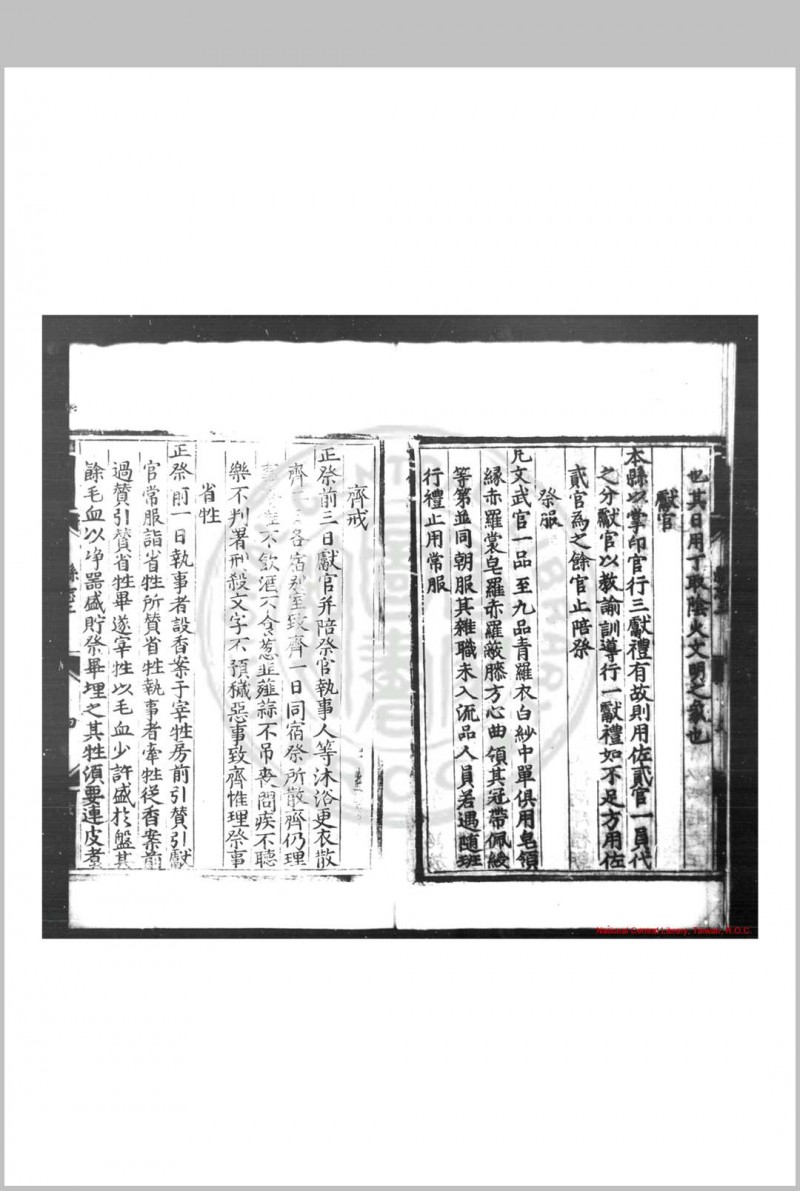 也其日用丁取陰火文明之象也
獻官
本縣以掌印官行三獻禮有故則用佐貳官一員代
之分獻官以教諭訓導行一獻禮如不足方用佐
貳官為之餘官止陪祭
祭服
凡文武官一品至九品青羅衣白紗中單俱用皂領
緣赤羅裳皂羅赤羅蔽膝方心曲領其冠帶佩綬
等第並同朝服其雜職未入流品人員若遇隨班
行禮止用常服
齊戒
正祭前三日獻官并陪祭官執事人等沐浴更衣散
齊二日各宿别室致齊一日同宿祭所散齊仍理
不飲酒不食葱韭薤蒜不吊丧問疾不聽
樂不判署刑殺文字不預穢惡事致齊惟理祭事
省牲
正祭前一日執事者設香案于宰牲房前引贊引獻
官常服詣省牲所贊省牲執事者牽牲從香案前
過贊引贊省牲畢遂宰牲以毛血少許盛於盤其
餘毛血以净器盛貯祭畢埋之其牲湏要連皮煮
National Central Library, Taiwan, R.O.C.